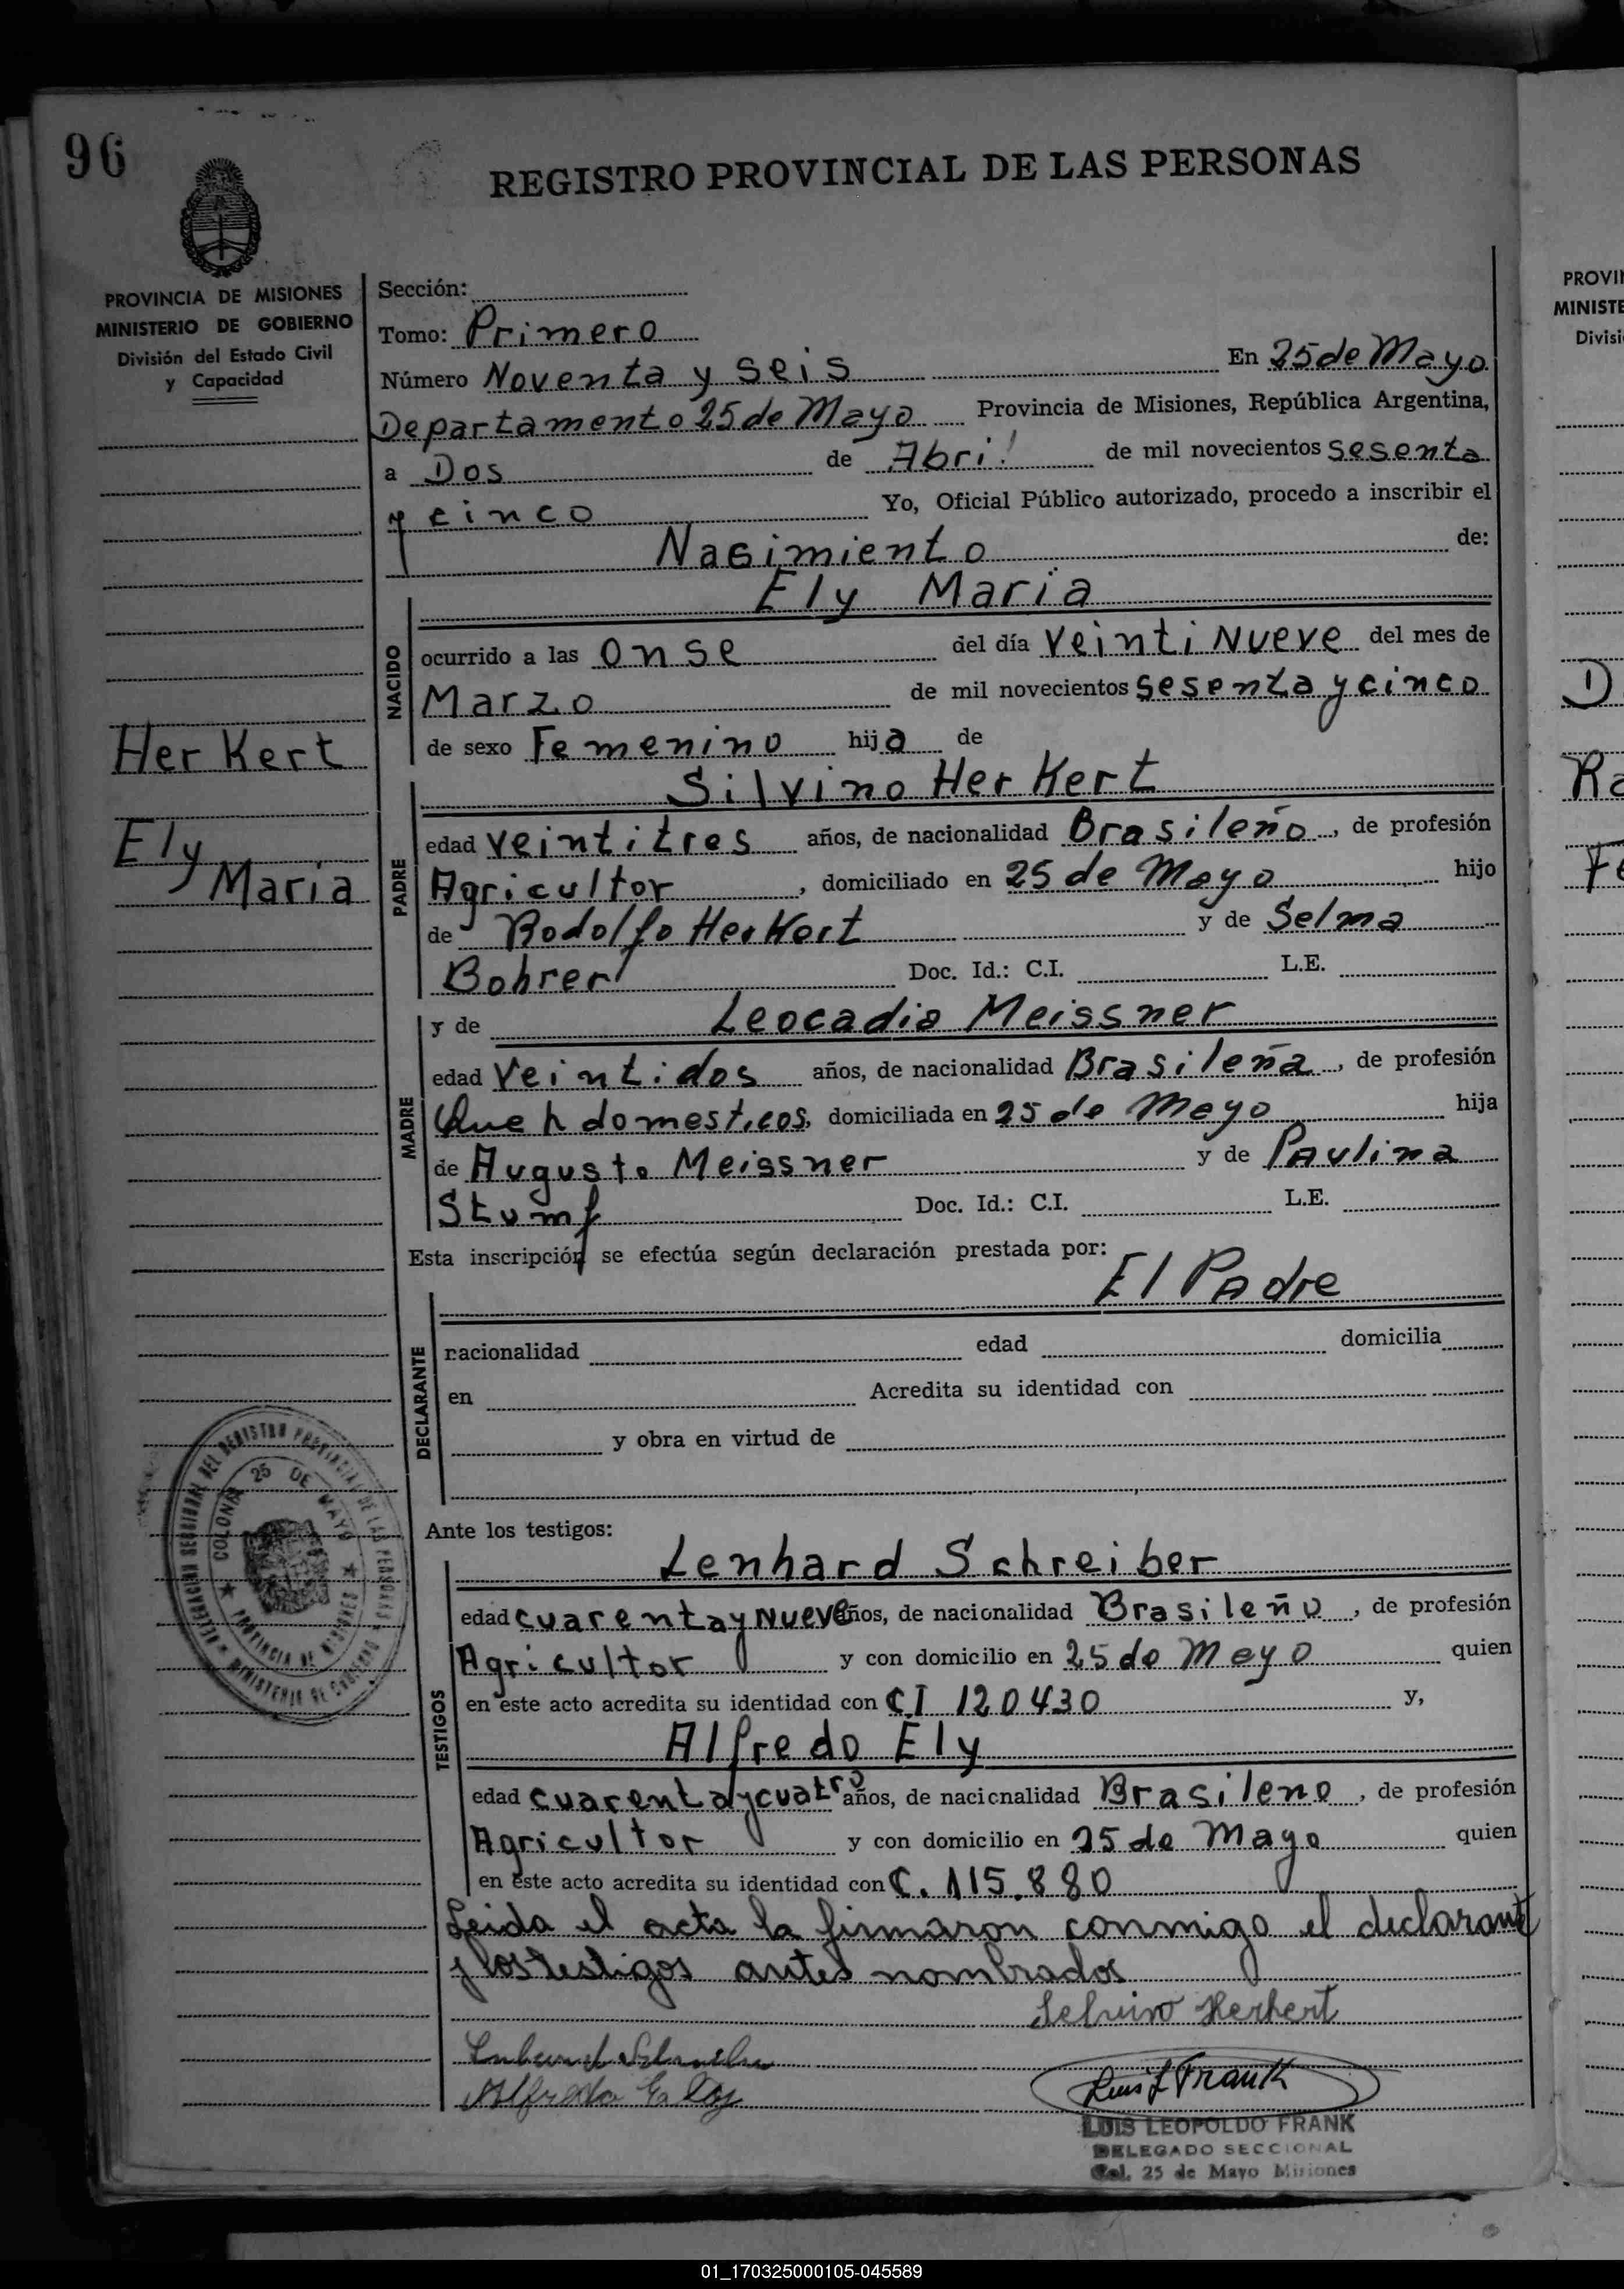 96
REGISTRO PROVINCIAL DE LAS PERSONAS
PROVINCIA DE MISIONES
MINISTERIO DE GOBIERNO
División del Estado Civil
y Capacidad
Herkert
Ely
Maria
Sección:
Tomo: Primero
Número Noventa y seis En 25 de Mayo
Departamento 25 de Mayo Provincia de Misiones, República Argentina,
a Dos de Abril de mil novecientos sesenta
y cinco Yo, Oficial Público autorizado, procedo a inscribir el
Nasimiento de:
Ely Maria
NACIDO
ocurrido a las Onse del día Veinti Nueve del mes de
Marzo de mil novecientos sesenta y cinco
de sexo Femenino hija de
Silvino Herkert
PADRE
edad veintitres años, de nacionalidad Brasileño, de profesión
Agricultor, domiciliado en 25 de Mayo hijo
de Rodolfo Herkert y de Selma
Bohrer Doc. Id.: C.I. L.E.
y de Leocadia Meissner
MADRE
edad Veintidos años, de nacionalidad Brasileña, de profesión
Que h domesticos, domiciliada en 25 de Mayo hija
de Augusto Meissner y de Paulina
Stumf Doc. Id.: C.I. L.E.
Esta inscripción se efectúa según declaración prestada por:
El Padre
DECLARANTE
nacionalidad edad domicilia
en Acredita su identidad con
y obra en virtud de
Ante los testigos:
Lenhard Schreiber
TESTIGOS
edad cuarenta y Nueve años, de nacionalidad Brasileño, de profesión
Agricultor y con domicilio en 25 de Mayo quien
en este acto acredita su identidad con C.I 120430 y,
Alfredo Ely
edad cuarenta y cuatro años, de nacionalidad Brasileno, de profesión
Agricultor y con domicilio en 25 de Mayo quien
en este acto acredita su identidad con C. 115.880
Leida el acta la firmaron conmigo el declarante
y los testigos antes nombrados
Selvino Herkert
Alfredo Ely
Luis L Frank
LUIS LEOPOLDO FRANK
DELEGADO SECCIONAL
Col. 25 de Mayo Misiones
COLONIA 25 DE MAYO
PROVINCIA DE MISIONES
DEL REGISTRO PROVINCIAL DE LAS PERSONAS
MINISTERIO DE GOBIERNO
PROVIN
MINISTE
Divisi
D
Ra
Fe
01_170325000105-045589